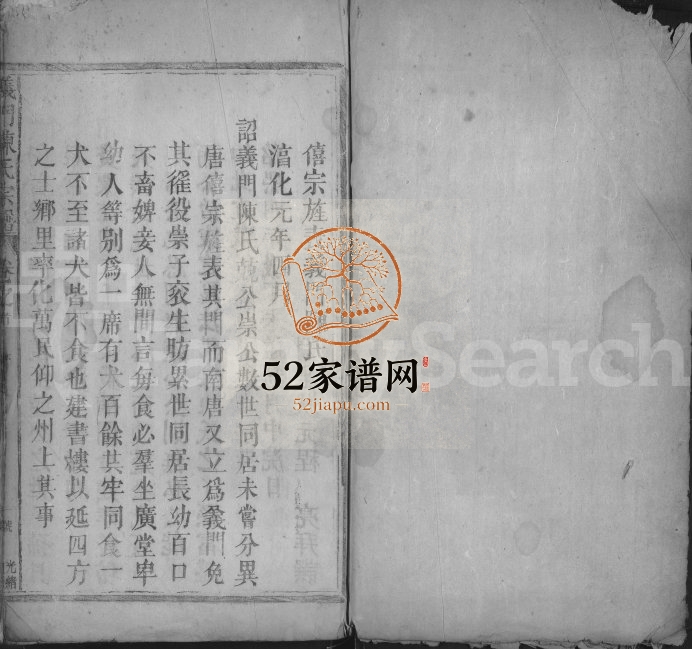 僖宗旌表義門陳氏
淳化元年
詔義門陳氏 公崇公數世同居未嘗分異
唐僖宗旌表其門而南唐又立爲義門免
其徭役崇子袞生昉累世同居長幼百口
不畜婢妾人無間言每食必羣坐廣堂卑
幼人等別爲一席有犬百餘其牢同食一
犬不至諸犬皆不食也建書樓以延四方
之士鄉里率化萬民仰之州上其事
義門陳氏宗譜
光緒
Search
52家谱网
52jiapu.com